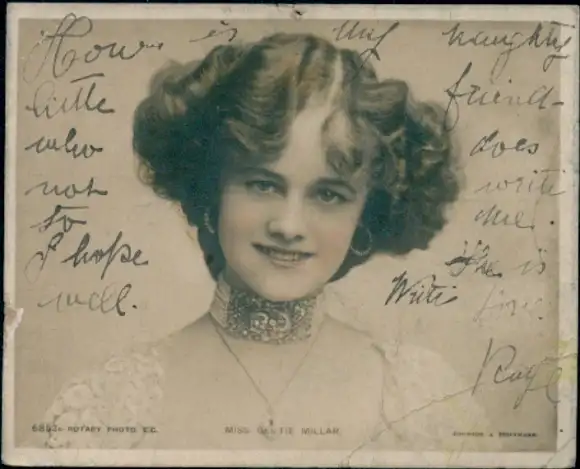 How is my naughty
little friend-
who does
not write
to me.
I hope she is
well. Write
6853 C ROTARY PHOTO. E.C. MISS GERTIE MILLAR.